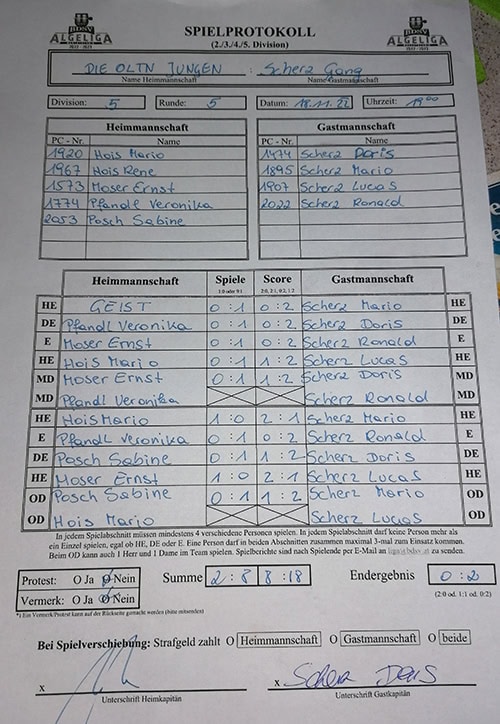 BDSV
ALGELIGA
SPIELPROTOKOLL
(2./3./4./5. Division)
BDSV
ALGELIGA
DIE OLTN JUNGEN : Scherz Gang
Name Heimmannschaft Name Gastmannschaft
Division: 5 Runde: 5 Datum: 18.11.22 Uhrzeit: 19 00
Heimmannschaft Gastmannschaft
PC - Nr. Name PC - Nr. Name
1920 Hois Mario 1474 Scherz Doris
1967 Hois Rene 1895 Scherz Mario
1573 Moser Ernst 1907 Scherz Lucas
1774 Pfandl Veronika 2022 Scherz Ronald
2053 Posch Sabine
Heimmannschaft Spiele Score Gastmannschaft
1:0 oder 0:1 2:0, 2:1, 0:2, 1:2
HE GEIST 0:1 0:2 Scherz Mario HE
DE Pfandl Veronika 0:1 0:2 Scherz Doris DE
E Moser Ernst 0:1 0:2 Scherz Ronald E
HE Hois Mario 0:1 1:2 Scherz Lucas HE
MD Moser Ernst 0:1 1:2 Scherz Doris MD
MD Pfandl Veronika Scherz Ronald MD
HE Hois Mario 1:0 2:1 Scherz Mario HE
E Pfandl Veronika 0:1 0:2 Scherz Ronald E
DE Posch Sabine 0:1 1:2 Scherz Doris DE
HE Moser Ernst 1:0 2:1 Scherz Lucas HE
OD Posch Sabine 0:1 1:2 Scherz Mario OD
OD Hois Mario Scherz Lucas OD
In jedem Spielabschnitt müssen mindestens 4 verschiedene Personen spielen. In jedem Spielabschnitt darf keine Person mehr als
ein Einzel spielen, egal ob HE, DE oder E. Eine Person darf in beiden Abschnitten zusammen maximal 3-mal zum Einsatz kommen.
Beim OD kann auch 1 Herr und 1 Dame im Team spielen. Spielberichte sind nach Spielende per E-Mail an zu senden.
Protest: O Ja O Nein Summe 2:8 8:18 Endergebnis 0:2
Vermerk: O Ja O Nein (2:0 od. 1:1 od. 0:2)
*) Ein Vermerk/Protest kann auf der Rückseite gemacht werden (bitte umseiten)
Bei Spielverschiebung: Strafgeld zahlt O Heimmannschaft O Gastmannschaft O beide
x x Scherz Doris
Unterschrift Heimkapitän Unterschrift Gastkapitän